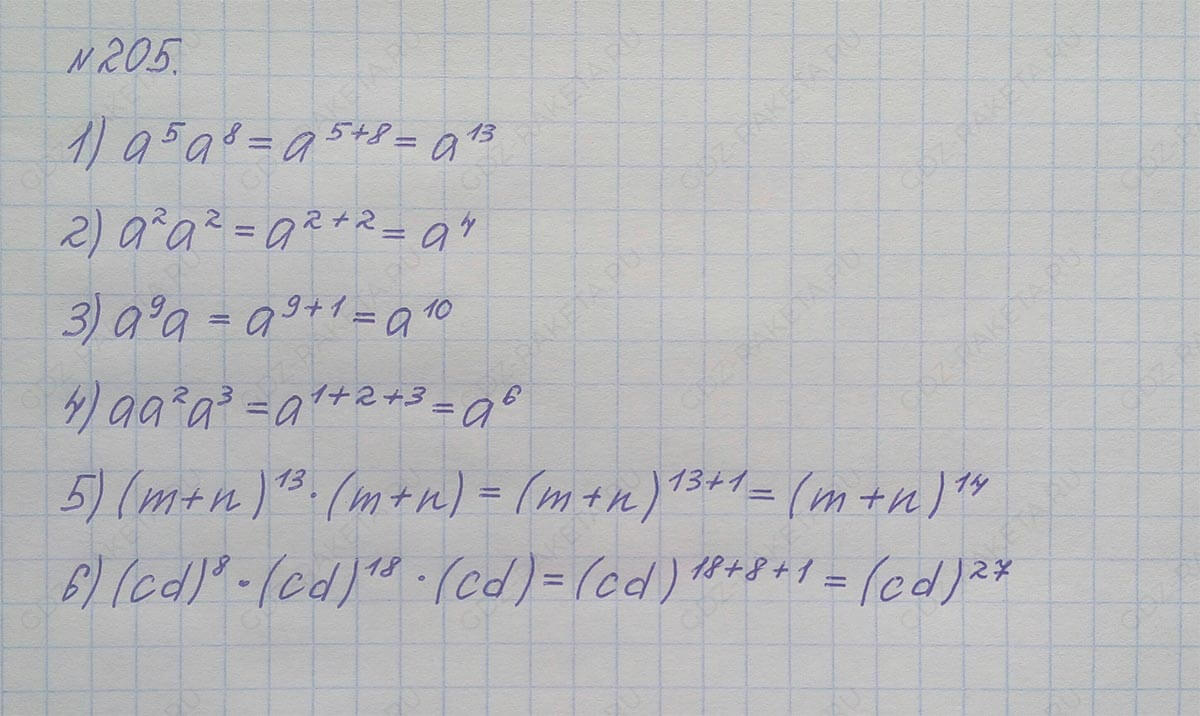 №205.
1) a⁵a⁸ = a⁵⁺⁸ = a¹³
2) a²a² = a²⁺² = a⁴
3) a⁹a = a⁹⁺¹ = a¹⁰
4) aa²a³ = a¹⁺²⁺³ = a⁶
5) (m+n)¹³·(m+n) = (m+n)¹³⁺¹ = (m+n)¹⁴
6) (cd)⁸·(cd)¹⁸·(cd) = (cd)¹⁸⁺⁸⁺¹ = (cd)²⁷
GDZ-RAKETA.RU